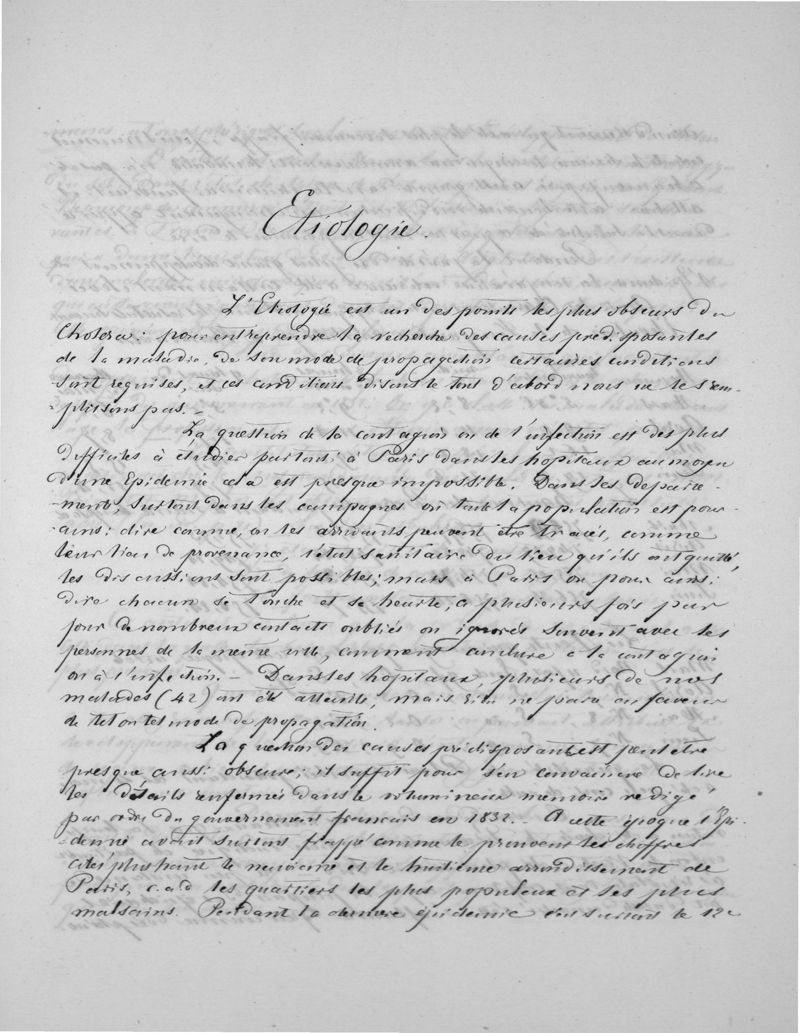 Etiologie.
L'Etiologie est un des points les plus obscurs du
Cholera: pour entreprendre la recherche des causes prédisposantes
de la maladie, de son mode de propagation certaines conditions
sont requises, et ces conditions disons le tout d'abord nous ne les rem-
-plissons pas.-
La question de la contagion ou de l'infection est des plus
difficiles à étudier partout: à Paris dans les hopitaux au moyen
d'une Epidemie cela est presque impossible. Dans les departe-
-ments, surtout dans les campagnes où toute la population est pour
ainsi dire connue, où les arrivants peuvent être tracés, comme
leur lieu de provenance, l'état sanitaire du lieu qu'ils ont quitté,
les discussions sont possibles; mais à Paris où pour ainsi
dire chacun se touche et se heurte, a plusieurs fois par
jour de nombreux contacts oubliés ou ignorés souvent avec les
personnes de la même ville, comment conclure à la contagion
ou à l'infection.- Dans les hopitaux, plusieurs de nos
malades (42) ont été atteints, mais rien ne parle en faveur
de tel ou tel mode de propagation.
La question des causes prédisposantes est peut etre
presque aussi obscure; il suffit pour s'en convaincre de lire
les détails renfermés dans le volumineux memoire redigé
par ordre du gouvernement français en 1832.. A cette époque l'Epi-
-demie avait surtout frappé comme le prouvent les chiffres
cités plus haut le neuvieme et le huitieme arrondissement de
Paris, c.a.d les quartiers les plus populeux et les plus
malsains. Pendant la derniere épidemie c'est surtout le 12e